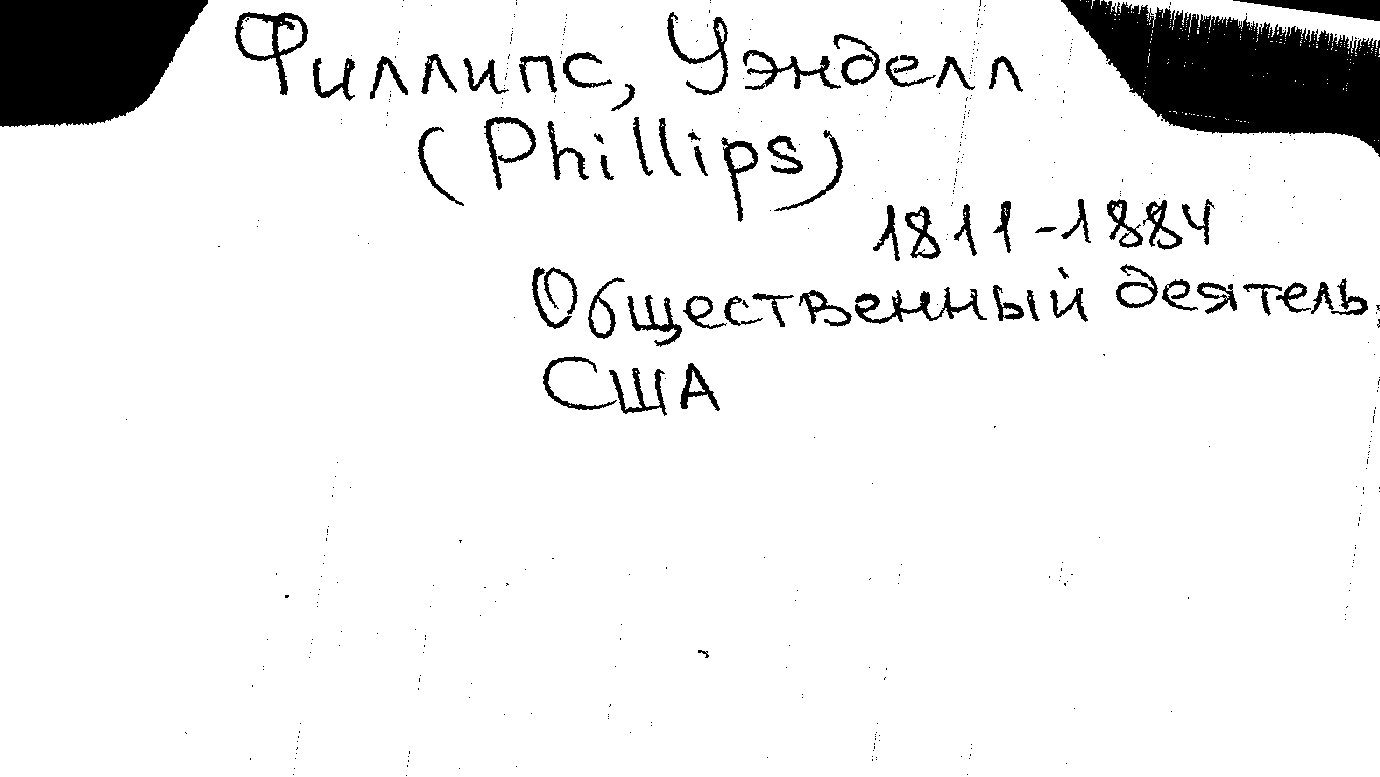 Филлипс, Уэнделл
(Phillips)
1811-1884
Общественный деятель,
США